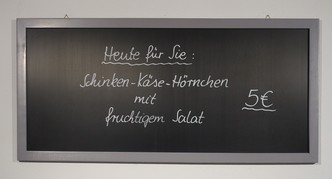 Heute für Sie :
Schinken-Käse-Hörnchen
mit
fruchtigem Salat
5€